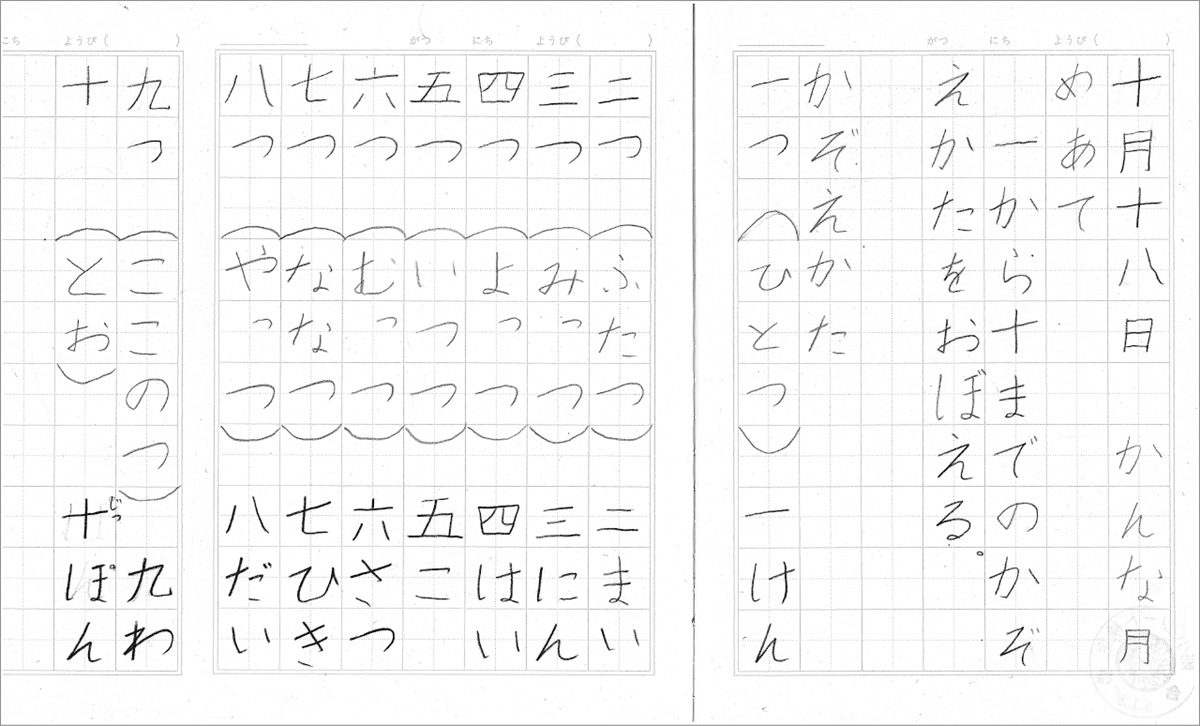 がつ にち ようび( )
十月十八日 かんな月
めあて
一から十までのかぞ
えかたをおぼえる。
かぞえかた
一つ(ひとつ)一けん
がつ にち ようび( )
二つ(ふたつ)二まい
三つ(みっつ)三にん
四つ(よっつ)四はい
五つ(いつつ)五こ
六つ(むっつ)六さつ
七つ(ななつ)七ひき
八つ(やっつ)八だい
にち ようび( )
九つ(ここのつ)九わ
十(とお)十じっぽん